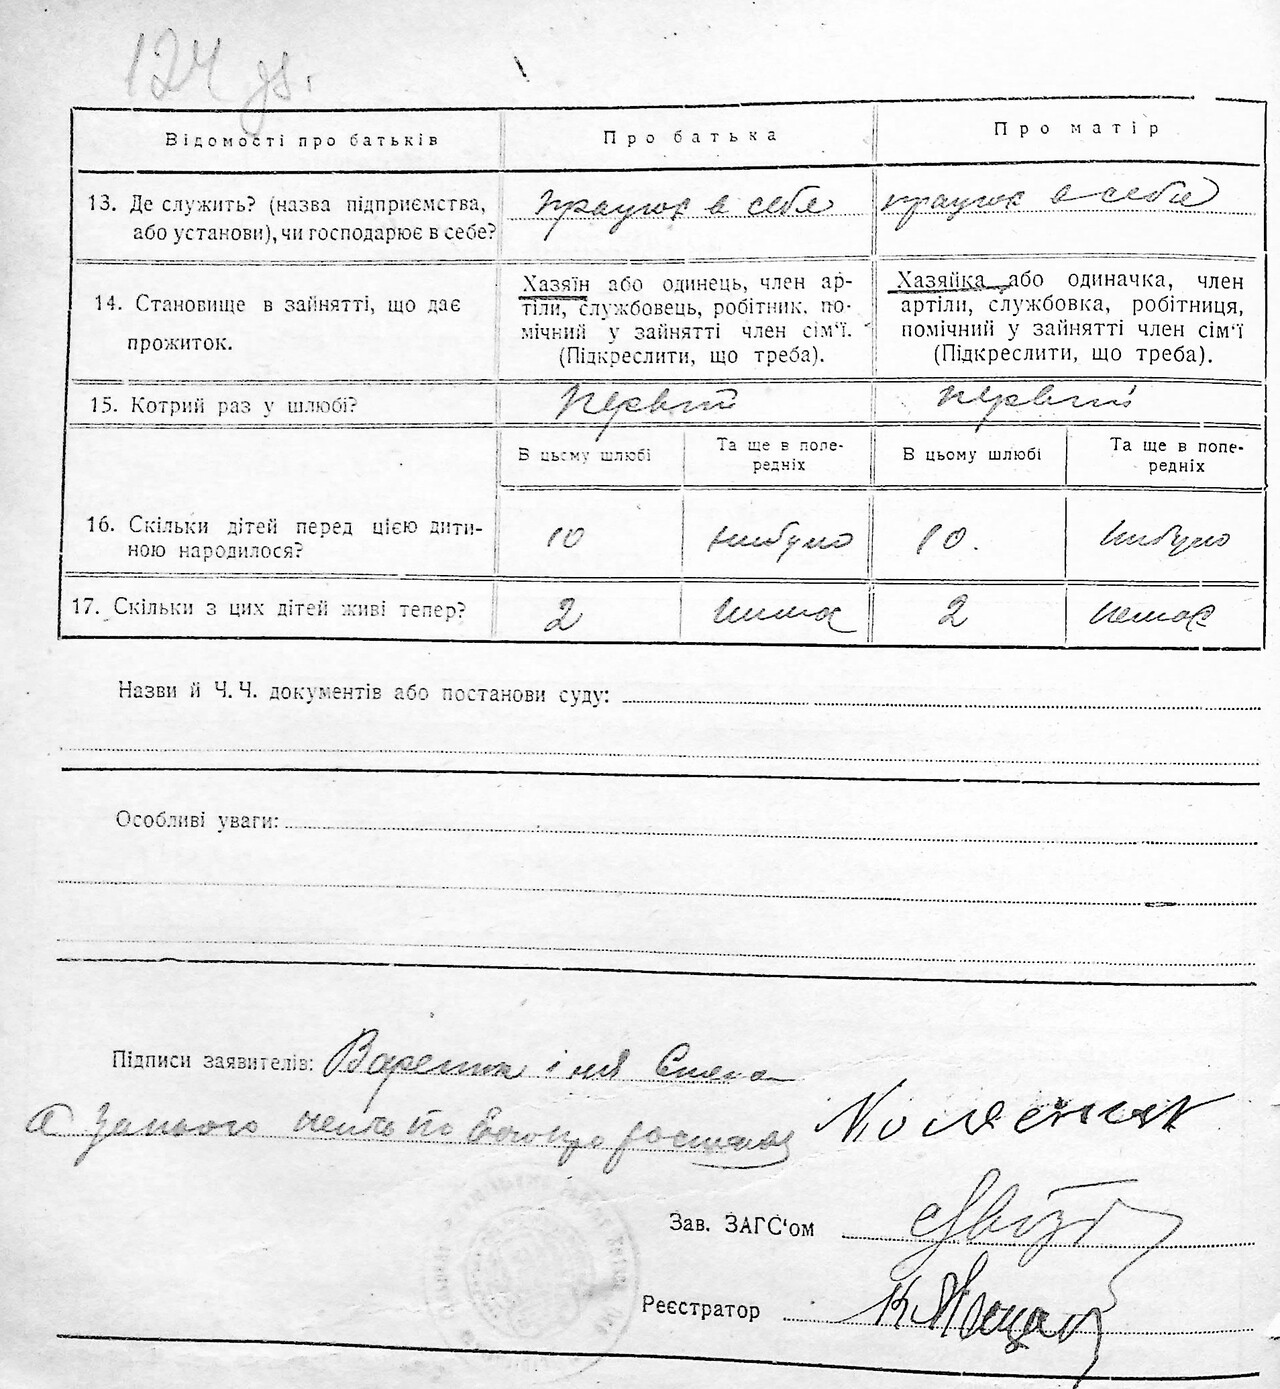 124 зв.
Відомості про батьків
Про батька
Про матір
13. Де служить? (назва підприємства,
або установи), чи господарює в себе?
працює в себе
працює в себе
14. Становище в зайнятті, що дає
прожиток.
Хазяїн або одинець, член ар-
тіли, службовець, робітник. по-
мічний у зайнятті член сім'ї.
(Підкреслити, що треба).
Хазяйка або одиначка, член
артіли, службовка, робітниця,
помічний у зайнятті член сім'ї
(Підкреслити, що треба).
15. Котрий раз у шлюбі?
первий
первий
В цьому шлюбі
Та ще в попе-
редніх
В цьому шлюбі
Та ще в попе-
редніх
16. Скільки дітей перед цією дити-
ною народилося?
10
нибуло
10.
нибуло
17. Скільки з цих дітей живі тепер?
2
нима
2
немає
Назви й Ч. Ч. документів або постанови суду:
Особливі уваги:
Підписи заявителів:
а
Зав. ЗАГС'ом
Реєстратор